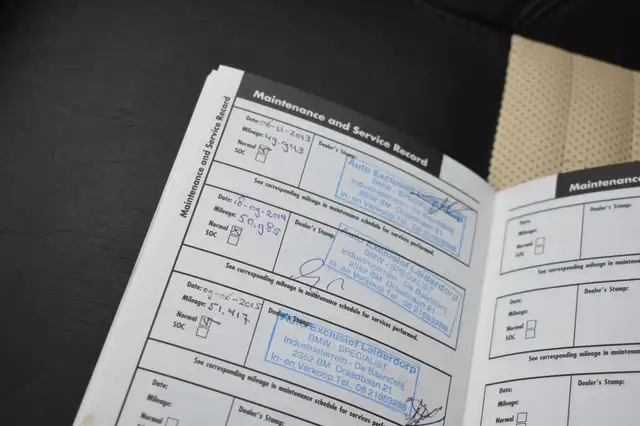 Maintenance and Service Record
Maintenance and Service Record
Date: 06-11-2013
Mileage: 49.943
Normal
SOC
Dealer's Stamp:
Auto Exclusief Leiderdorp
BMW - SPECIALIST
Industrieterrein - De Baanderij
2352 BM. Draadbaan 21
In- en Verkoop Tel. 06 21853288
See corresponding mileage in maintenance schedule for services performed.
Date: 18-09-2014
Mileage: 50.985
Normal
SOC
Dealer's Stamp:
Auto Exclusief Leiderdorp
BMW - SPECIALIST
Industrieterrein - De Baanderij
2352 BM. Draadbaan 21
In- en Verkoop Tel. 06 21853288
See corresponding mileage in maintenance schedule for services performed.
Date: 09-06-2015
Mileage: 51.417
Normal
SOC
Dealer's Stamp:
Auto Exclusief Leiderdorp
BMW - SPECIALIST
Industrieterrein - De Baanderij
2352 BM. Draadbaan 21
In- en Verkoop Tel. 06 21853288
See corresponding mileage in maintenance schedule for services performed.
Date:
Mileage:
Normal
Dealer's Stamp:
Maintenance
Date:
Mileage:
Normal
SOC
Date:
Mileage:
Normal
SOC
Date:
Mileage:
Normal
SOC